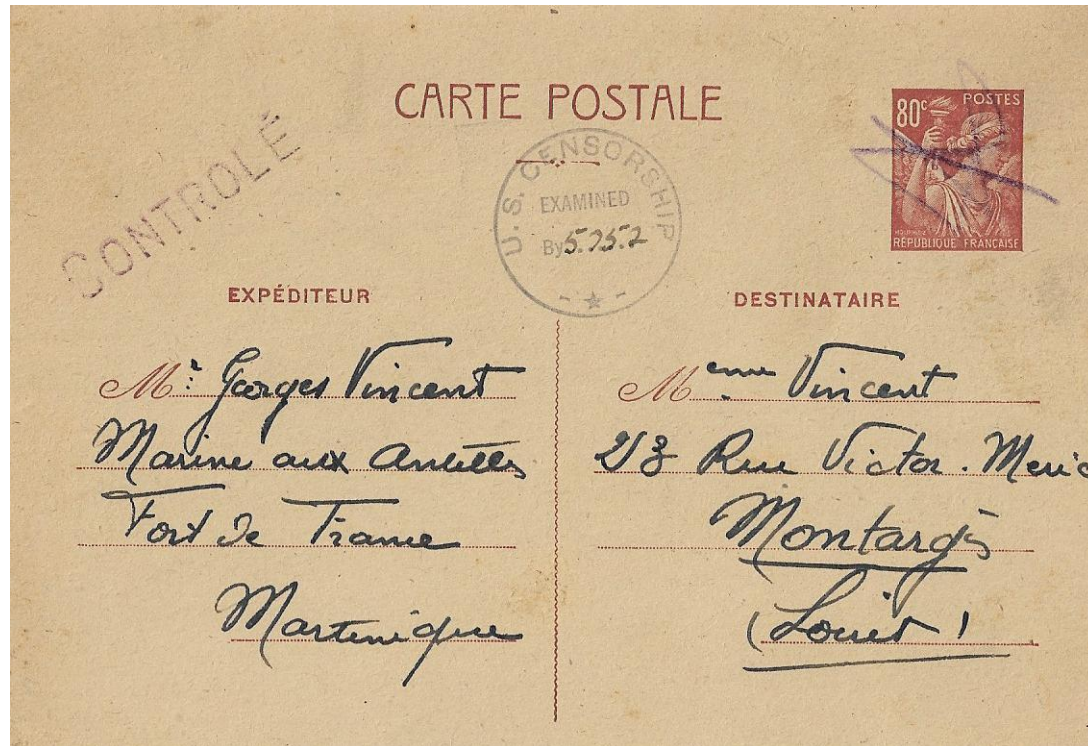 CARTE POSTALE
80c POSTES
RÉPUBLIQUE FRANÇAISE
CONTROLÉ
U.S. CENSORSHIP
EXAMINED
By 5252
EXPÉDITEUR
DESTINATAIRE
Mr: Georges Vincent
Marine aux Antilles
Fort de France
Martinique
Meme Vincent
23 Rue Victor. Meric
Montargis
(Loiret)